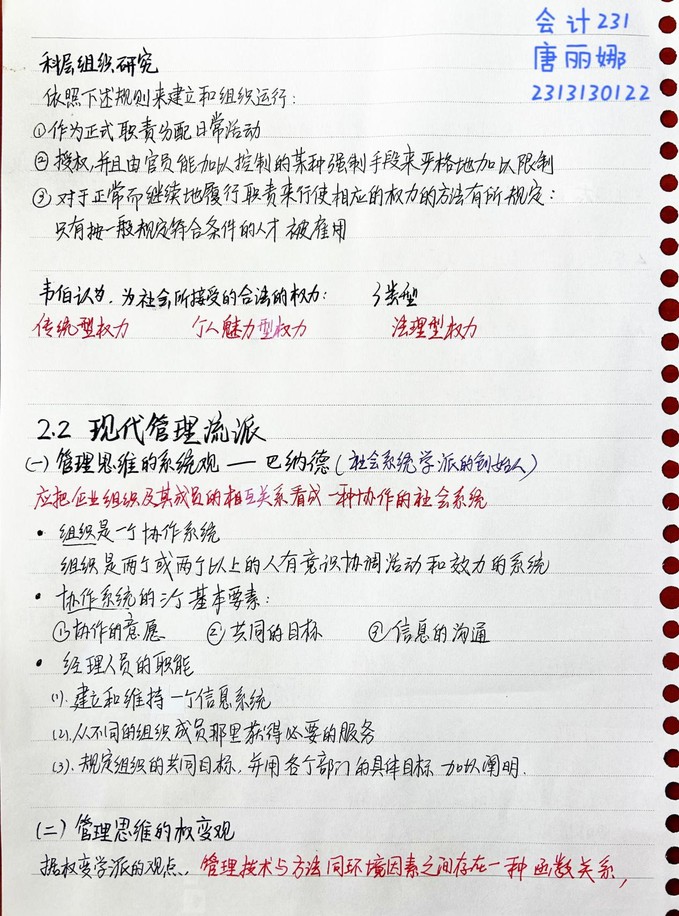 会计231
唐丽娜
2313130122
科层组织研究
依照下述规则来建立和组织运行：
①作为正式职责分配日常活动
②授权,并且由官员能加以控制的某种强制手段来严格地加以限制
③对于正常而继续地履行职责来行使相应的权力的方法有所规定：
只有按一般规定符合条件的人才被雇用
韦伯认为，为社会所接受的合法的权力： 3类型
传统型权力 个人魅力型权力 法理型权力
2.2 现代管理流派
(一)管理思维的系统观——巴纳德(社会系统学派的创始人)
应把企业组织及其成员的相互关系看成一种协作的社会系统
• 组织是一个协作系统
组织是两个或两个以上的人有意识协调活动和效力的系统
• 协作系统的3个基本要素：
①协作的意愿 ②共同的目标 ③信息的沟通
• 经理人员的职能
(1).建立和维持一个信息系统
(2).从不同的组织成员那里获得必要的服务
(3).规定组织的共同目标，并用各个部门的具体目标加以阐明.
(二)管理思维的权变观
据权变学派的观点、，管理技术与方法同环境因素之间存在一种函数关系，